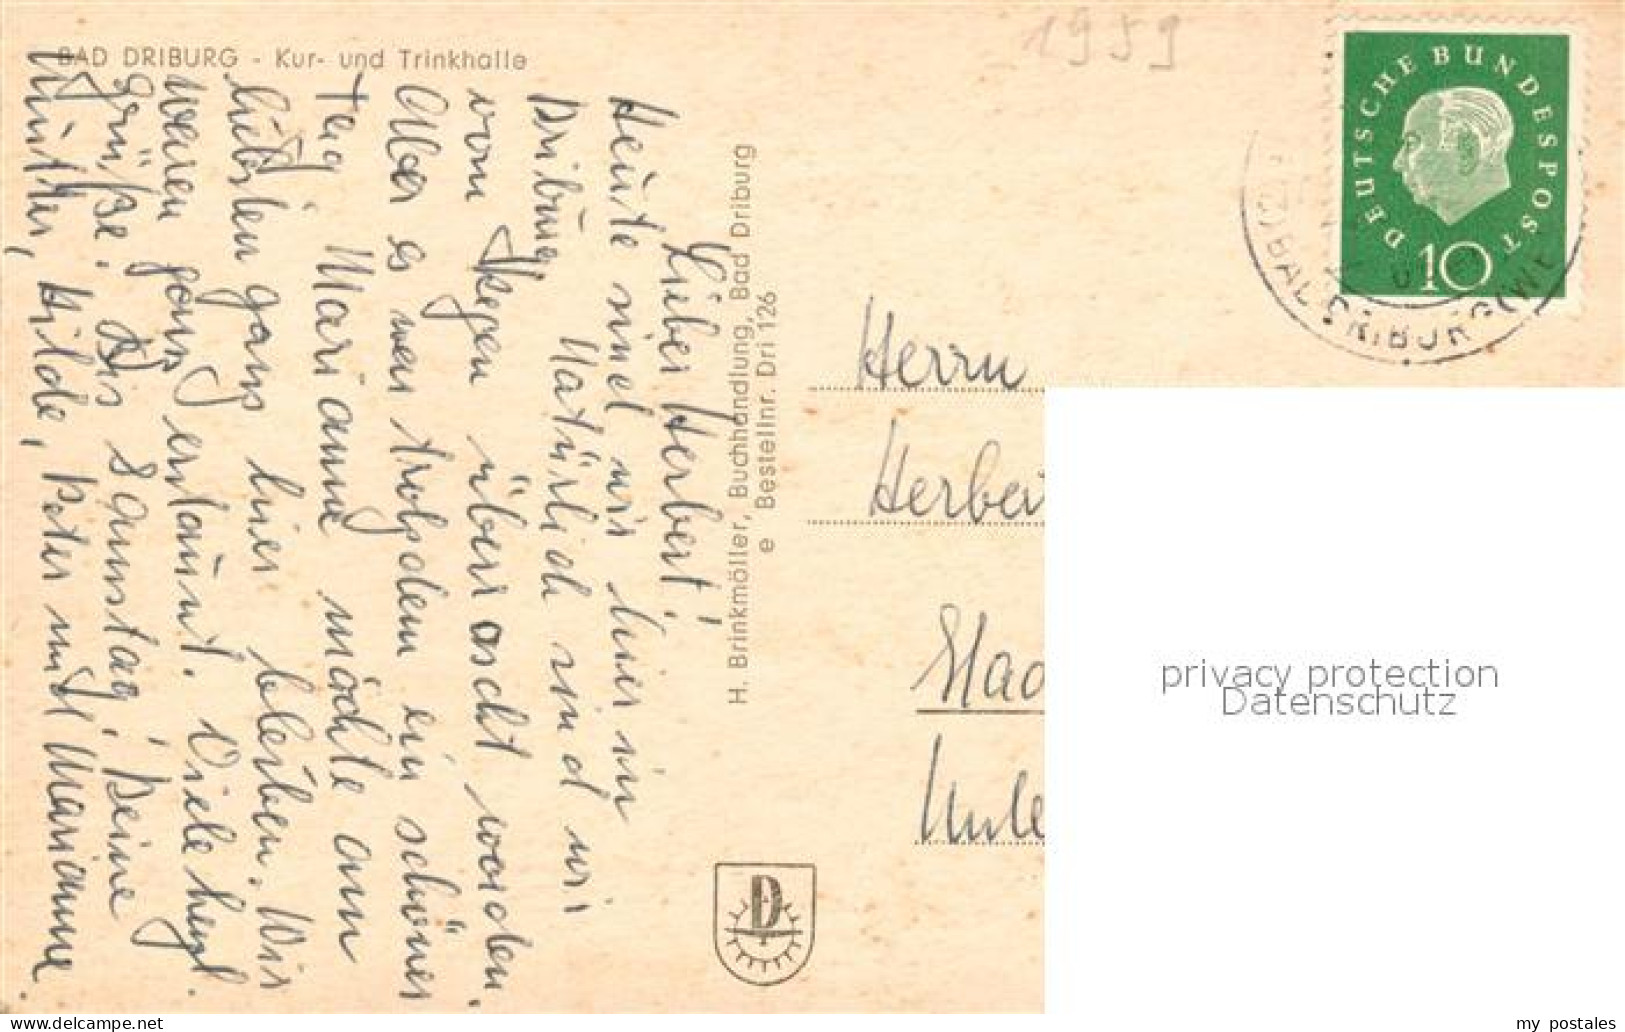 BAD DRIBURG - Kur- und Trinkhalle
1959
DEUTSCHE BUNDESPOST
10
BAD DRIBURG (W
Lieber Herbert!
Heute sind wir hier in
Driburg. Natürlich sind wir
vom Regen überrascht worden.
Aber es war trotzdem ein schöner
Tag. Marianne möchte am
liebsten ganz hier bleiben. Wir
waren ganz erstaunt. Viele herzl.
Grüße. Bis Samstag! Deine
Mutter, Hilde, Peter und Marianne.
H. Brinkmöller, Buchhandlung, Bad Driburg
e Bestellnr. Dri 126
D
Herrn
Herber
Stad
Unte
privacy protection
Datenschutz
Delcampe.net
my_postales